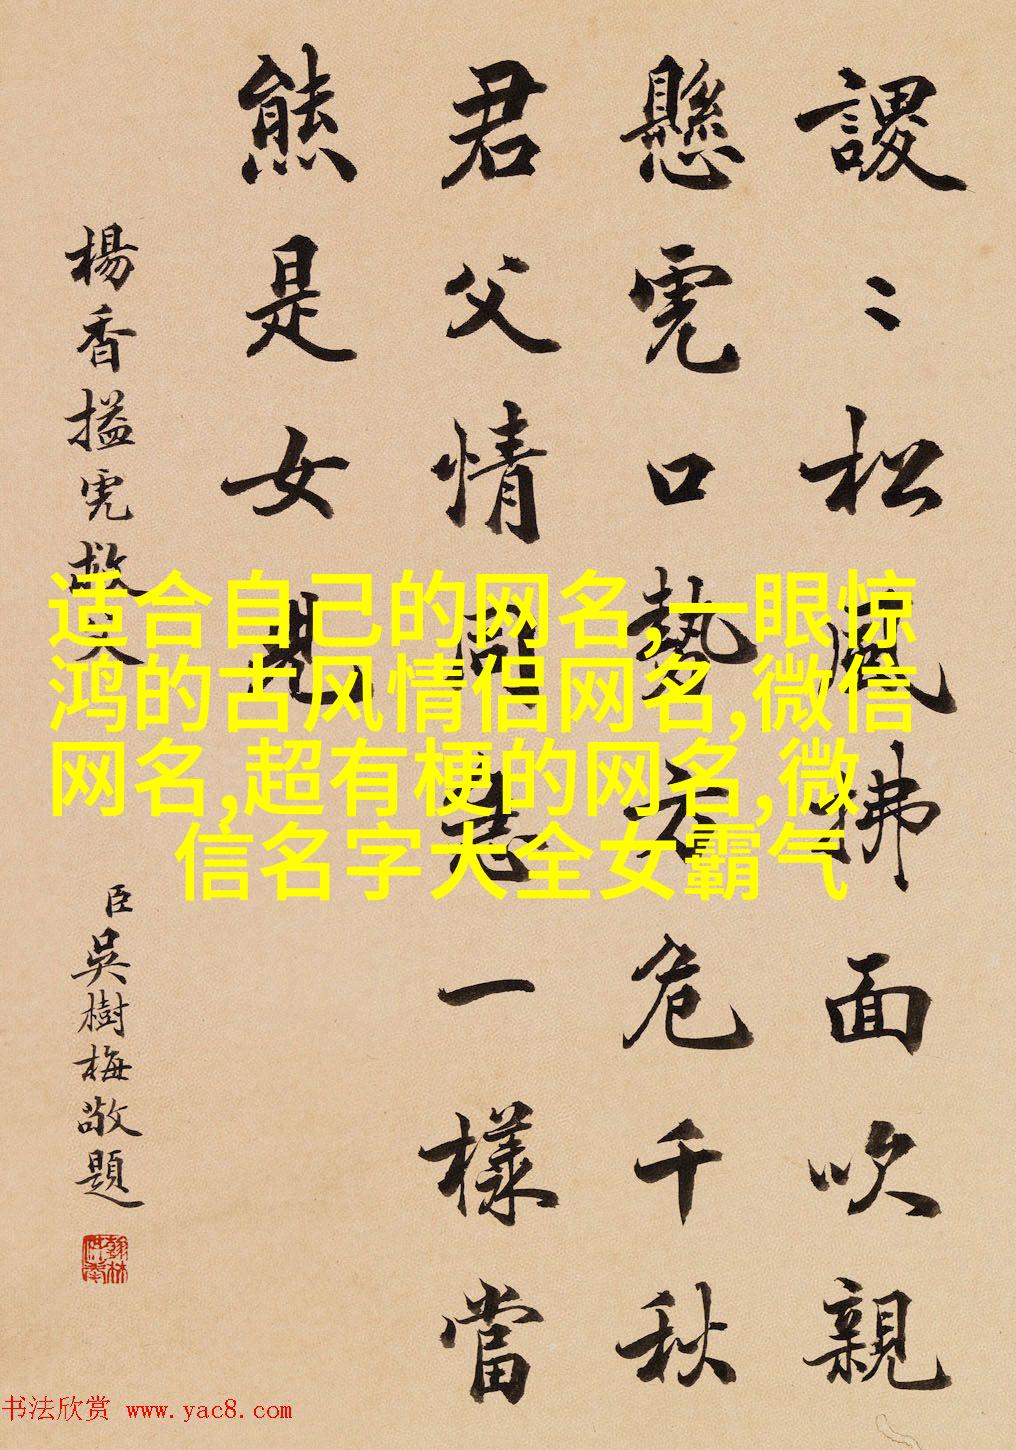 謖〻松風拂面吹親
懸虎口勢方危千秋
君父情同急一樣當
熊是女兒
楊香搤虎救父
臣吳樹梅敬題
翰林供奉
适合自己的网名,一眼惊
鸿的古风情侣网名,微信
网名,超有梗的网名,微
信名字大全女霸气
书法欣赏 www.yac8.com